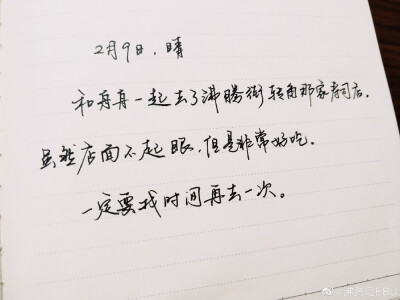 2月9日，晴
和冉冉一起去了沸腾街转角那家寿司店。
虽然店面不起眼，但是非常好吃。
一定要找时间再去一次。